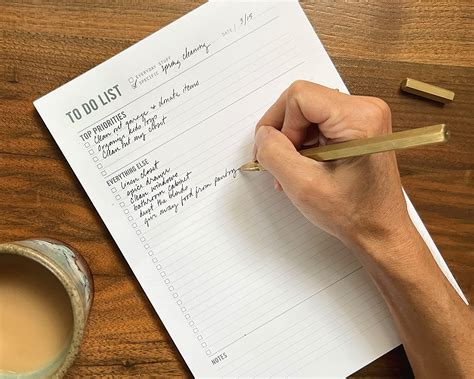 TO DO LIST
EVERYDAY STUFF
SPECIFIC spring cleaning
DATE / 3/19
TOP PRIORITIES
Clean out garage & donate items
Organize kids toys
Clean out my closet
EVERYTHING ELSE
linen closet
spice drawer
clean windows
bathroom cabinet
dust the blinds
give away food from pantry
NOTES